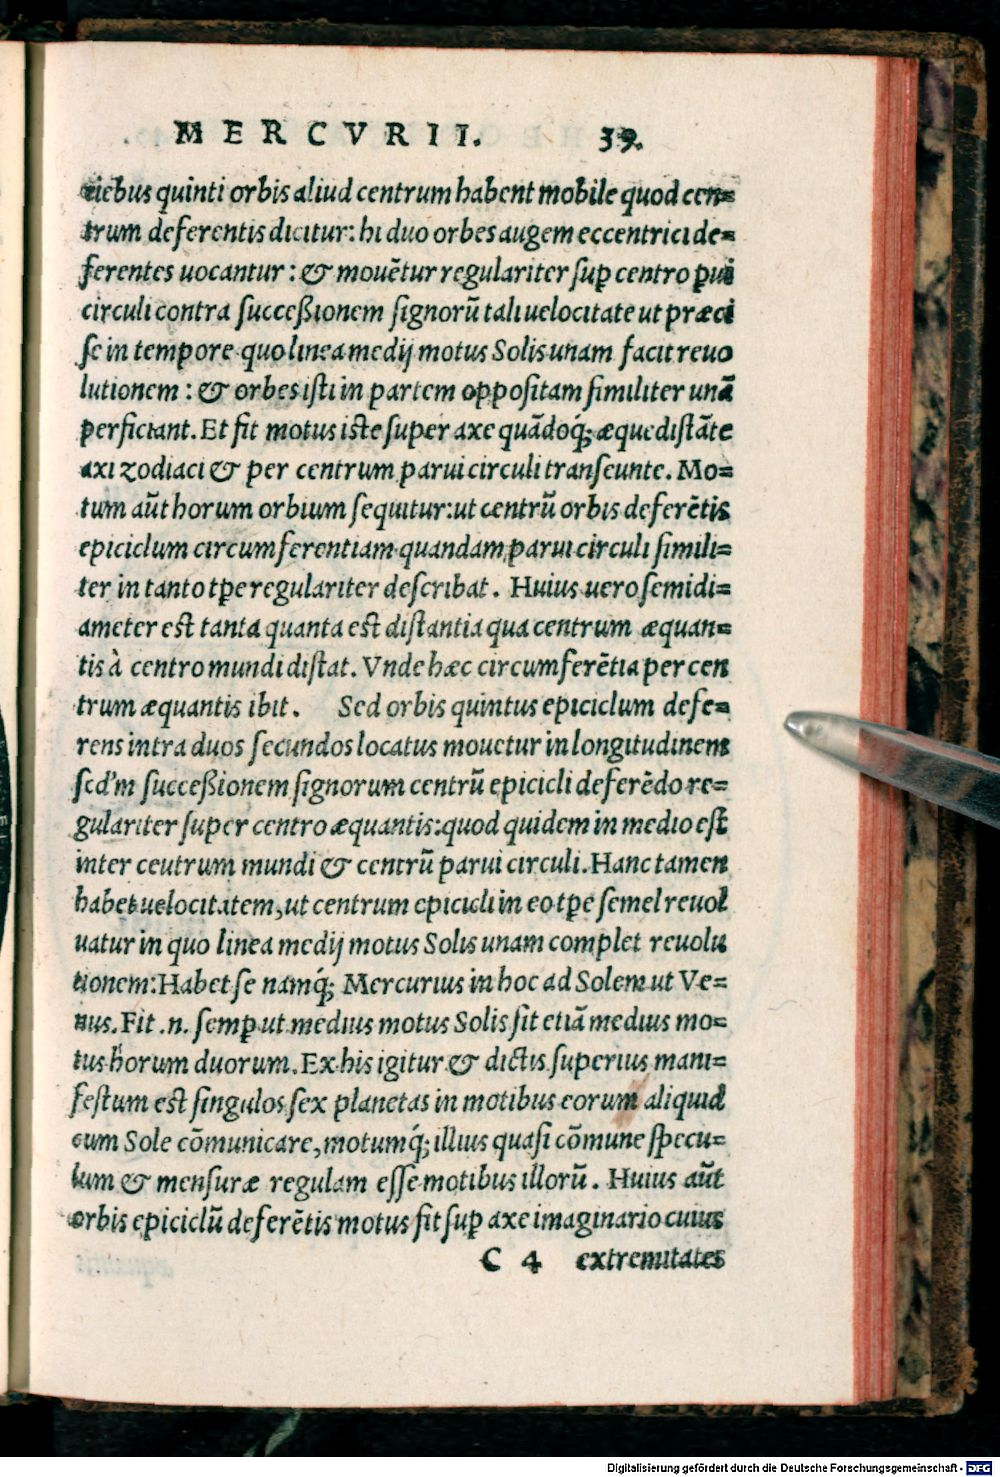 MERCVRII. 39.
ciebus quinti orbis aliud centrum habent mobile quod cen=
trum deferentis dicitur: hi duo orbes augem eccentrici de=
ferentes uocantur: & mouētur regulariter suꝑ centro ꝑui
circuli contra succeßionem signorū tali uelocitate ut præci
se in tempore quo linea medij motus Solis unam facit reuo
lutionem: & orbes isti in partem oppositam similiter unā
perficiant. Et fit motus iste super axe quādoq́; æquedistāte
axi zodiaci & per centrum parui circuli transeunte. Mo=
tum aūt horum orbium sequitur: ut centrū orbis deferētis
epiciclum circumferentiam quandam parui circuli simili=
ter in tanto tꝑe regulariter describat. Huius uero semidi=
ameter est tanta quanta est distantia qua centrum æquan=
tis à centro mundi distat. Vnde hæc circumferētia per cen
trum æquantis ibit. Sed orbis quintus epiciclum defe=
rens intra duos secundos locatus mouetur in longitudinem
secd'm succeßionem signorum centrū epicicli deferēdo re=
gulariter super centro æquantis: quod quidem in medio est
inter ceutrum mundi & centrū parui circuli. Hanc tamen
habet uelocitatem, ut centrum epicicli in eo tꝑe semel reuol
uatur in quo linea medij motus Solis unam complet reuolu
tionem: Habet se namq́; Mercurius in hoc ad Solem ut Ve=
nus. Fit .n. semꝑ ut medius motus Solis sit etiā medius mo=
tus horum duorum. Ex his igitur & dictis superius mani=
festum est singulos sex planetas in motibus eorum aliquid
cum Sole cōmunicare, motumq́; illius quasi cōmune specu=
lum & mensuræ regulam esse motibus illorū. Huius aūt
orbis epiciclū deferētis motus fit suꝑ axe imaginario cuius
C 4 extremitates
Digitalisierung gefördert durch die Deutsche Forschungsgemeinschaft - DFG